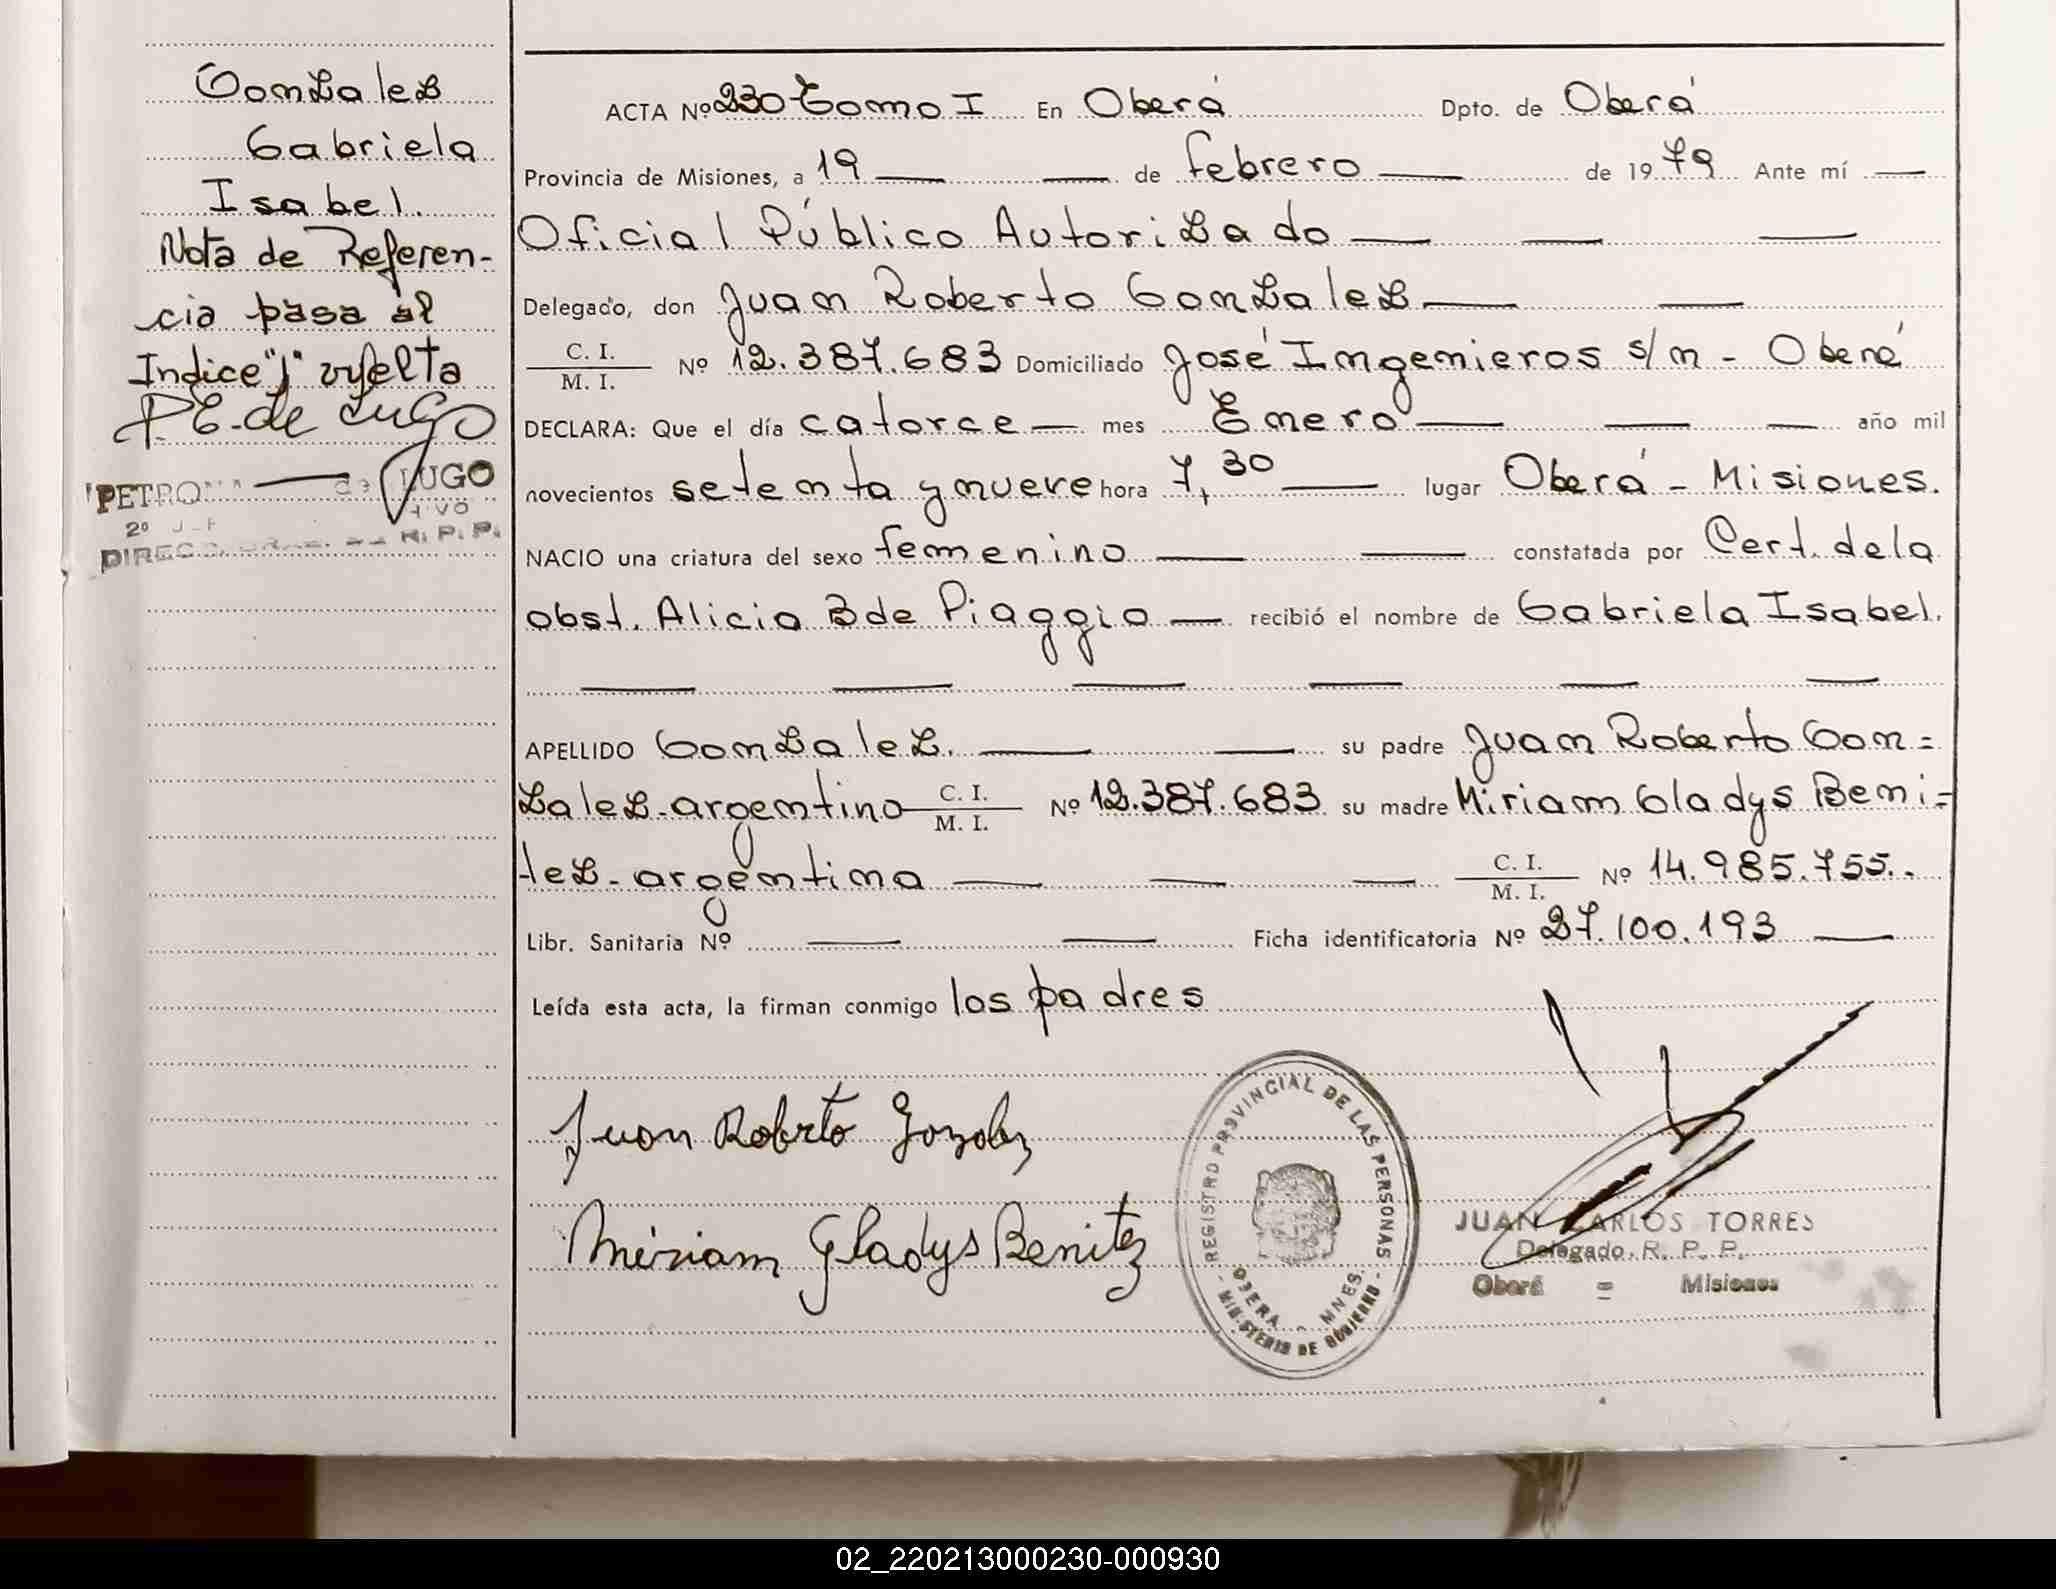 Gonzalez
Gabriela
Isabel.
Nota de Referen-
cia pasa al
Indice "J" vuelta
P.E. de Lugo
PETRONA LUGO
2º
DIREC. GRAL. DE R. P. P.
ACTA Nº 230 Tomo I En Oberá Dpto. de Oberá
Provincia de Misiones, a 19 — — de febrero — de 1979 Ante mí —
Oficial Público Autorizado — — —
Delegado, don Juan Roberto Gonzalez — —
C. I.
M. I. Nº 12.387.683 Domiciliado José Ingenieros s/n - Oberá
DECLARA: Que el día catorce — mes Enero — — — año mil
novecientos setenta y nueve hora 7,30 — lugar Oberá - Misiones.
NACIO una criatura del sexo femenino — — constatada por Cert. de la
obst. Alicia B de Piaggio — recibió el nombre de Gabriela Isabel.
— — — — — —
APELLIDO Gonzalez. — — su padre Juan Roberto Gon=
zalez - argentino C. I.
M. I. Nº 12.387.683 su madre Miriam Gladys Beni=
tez - argentina — — — C. I.
M. I. Nº 14.985.755..
Libr. Sanitaria Nº — — Ficha identificatoria Nº 27.100.193 —
Leída esta acta, la firman conmigo los padres
Juan Roberto Gonzalez
Miriam Gladys Benitez
REGISTRO PROVINCIAL DE LAS PERSONAS
OBERA - MNES.
- MINISTERIO DE GOBIERNO -
JUAN CARLOS TORRES
Delegado. R. P. P.
Oberá = Misiones
02_220213000230-000930